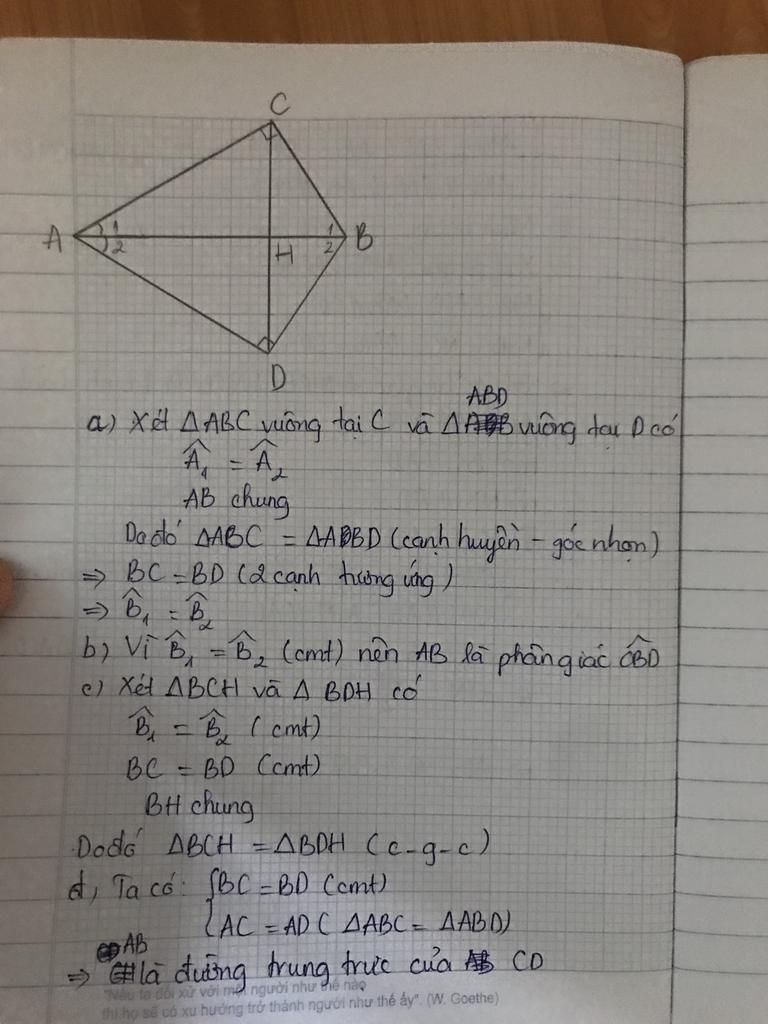 C
A 1 2 H 1 2 B
D
a) Xét ΔABC vuông tại C và ΔABD vuông tại D có
Â₁ = Â₂
AB chung
Do đó ΔABC = ΔABD (cạnh huyền - góc nhọn)
=> BC = BD (2 cạnh tương ứng)
=> B̂₁ = B̂₂
b) Vì B̂₁ = B̂₂ (cmt) nên AB là phân giác ĈBD
c) Xét ΔBCH và Δ BDH có
B̂₁ = B̂₂ (cmt)
BC = BD (cmt)
BH chung
Do đó ΔBCH = ΔBDH (c-g-c)
d, Ta có: { BC = BD (cmt)
AC = AD ( ΔABC = ΔABD)
=> AB là đường trung trực của CD
"Nếu ta đối xử với một người như thế nào
thì họ sẽ có xu hướng trở thành người như thế ấy". (W. Goethe)